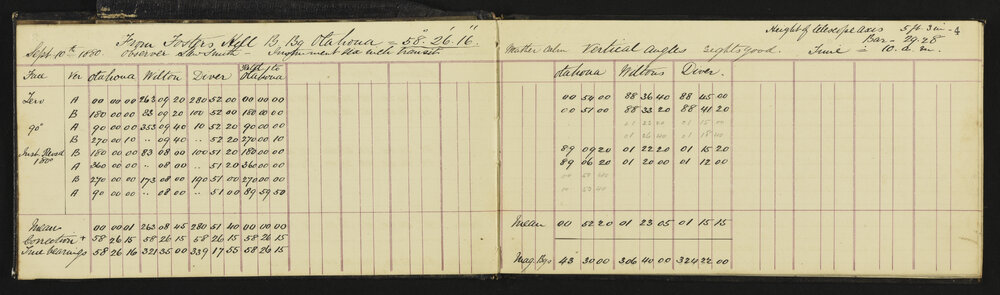 From Fosters Hill B. Bg Otahoua = 58°.26'.16".
Sept. 10th 1880. Observer S. Smith - Instrument Six inch Transit
Face Ver Otahoua Wilton Diver Otahoua
Zero A 00 00 00 263 09 20 280 52 00 00 00 00
B 180 00 00 83 09 20 100 52 00 180 00 00
90° A 90 00 00 353 09 40 10 52 20 90 00 00
B 270 00 10 " 09 40 " 52 20 270 00 10
B 180 00 00 83 08 00 100 51 20 180 00 00
180° A 360 00 00 " 08 00 " 51 20 360 00 00
B 270 00 00 173 08 00 190 51 00 270 00 00
A 90 00 00 " 08 00 " 51 00 89 59 50
Mean 00 00 01 263 08 45 280 51 40 00 00 00
Correction + 58 26 15 58 26 15 58 26 15 58 26 15
True bearings 58 26 16 321 35 00 339 17 55 58 26 15
Height of telescope axis 5 ft. 3 in
Bar - 29.28
Weather Calm Vertical Angles Sights good. Time = 10. a. m.
Otahoua Wiltons Diver.
00 54 00 88 36 40 88 45 00
00 51 00 88 33 20 88 41 20
01 23 20 01 15 00
01 26 40 01 18 40
89 09 20 01 22 20 01 15 20
89 06 20 01 20 00 01 12 00
00 50 40
00 53 40
Mean 00 52 20 01 23 05 01 15 15
Mag. Bgs 43 30 00 306 40 00 324 22 00